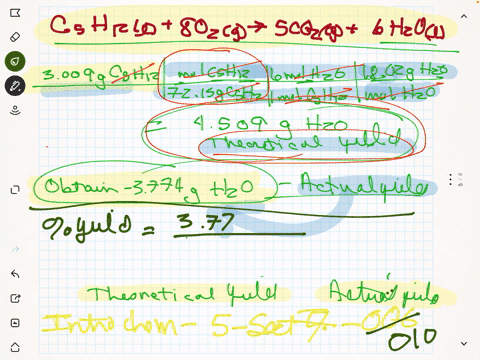 C5H12(l) + 8O2(g) → 5CO2(g) + 6H2O(l)
3.009g C5H12 | mol C5H12 | 6mol H2O | 18.02g H2O
72.15g C5H12 | mol C5H12 | mol H2O
= 4.509 g H2O
Theoretical yield
Obtain - 3.774 g H2O - Actual yield
% yield = 3.77
Theoretical yield Actual yield
Intro chem - 5 - Sect 7. - 006
010